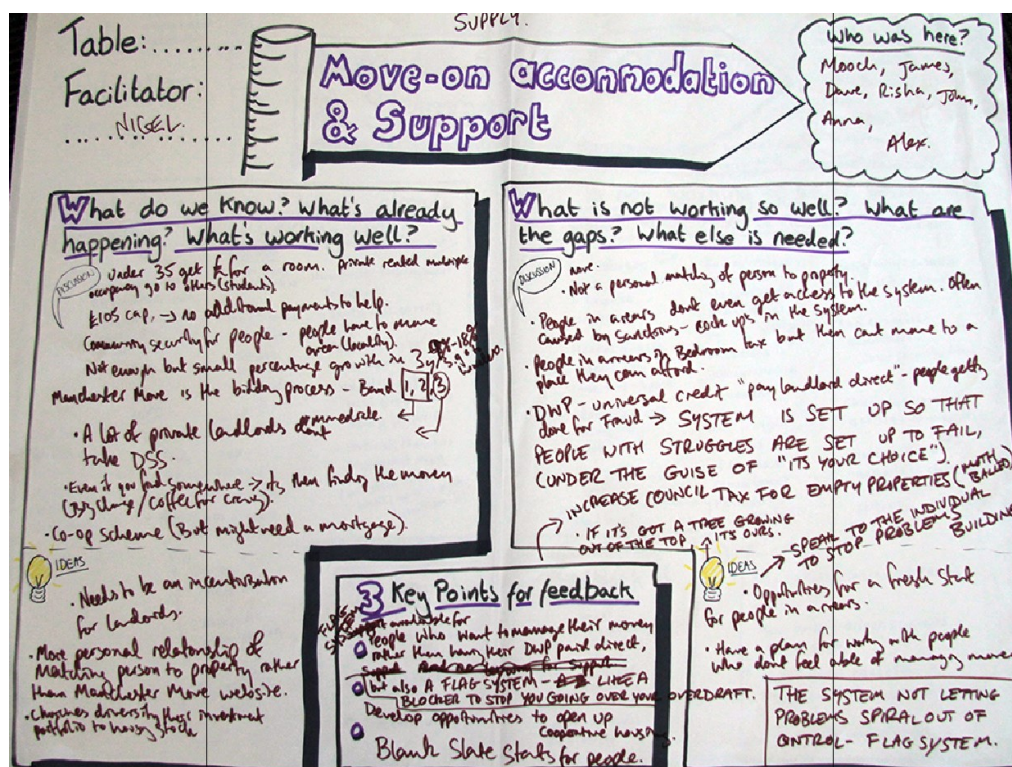 SUPPLY.
Table:.........
Facilitator:
NIGEL
Move-on accommodation
& Support
Who was here?
Mooch, James,
Dave, Risha, John,
Anna,
Alex.
What do we know? What's already
happening? What's working well?
DISCUSSION
under 35 get £ for a room. private rented multiple
occupancy go to others (students).
£105 cap, → no additional payments to help.
Community security for people - people have to move
area (locality).
Not enough but small percentage growth in 3
Manchester Move is the bidding process - Band 1, 2, 3
• A lot of private landlords dont
take DSS.
• Even if you find somewhere → its then finding the money
(Big Change / Coffee for Craig)
• Co-op scheme (But might need a mortgage).
IDEAS
• Needs to be an incentivisation
for landlords.
• More personal relationship of
Matching person to property rather
than Manchester Move website.
• Churches diversify their investment
portfolio to housing stock
What is not working so well? What are
the gaps? What else is needed?
DISCUSSION
• Not a personal matching of person to property.
• People in arrears dont even get access to the system. Often
caused by Sanctions - cock ups in the system.
• People in arrears of Bedroom tax but then cant move to a
place they can afford.
• DWP - universal credit "pay landlord direct" - people getting
done for Fraud → SYSTEM IS SET UP SO THAT
PEOPLE WITH STRUGGLES ARE SET UP TO FAIL,
(UNDER THE GUISE OF "ITS YOUR CHOICE")
INCREASE COUNCIL TAX FOR EMPTY PROPERTIES (MOTH
BALLED
BUILDING
• IF IT'S GOT A TREE GROWING
OUT OF THE TOP ITS OURS.
SPEAK TO THE INDIVIDUAL
TO STOP PROBLEMS
IDEAS
• Opportunities for a fresh start
for people in arrears.
• Have a plan for working with people
who dont feel able of managing money
THE SYSTEM NOT LETTING
PROBLEMS SPIRAL OUT OF
CONTROL - FLAG SYSTEM.
3 Key Points for feedback
Support available for
People who want to manage their money
rather than having their DWP paid direct,
but also A FLAG SYSTEM - LIKE A
BLOCKER TO STOP YOU GOING OVER YOUR OVERDRAFT.
Develop opportunities to open up
cooperative housing.
Blank Slate Starts for people.